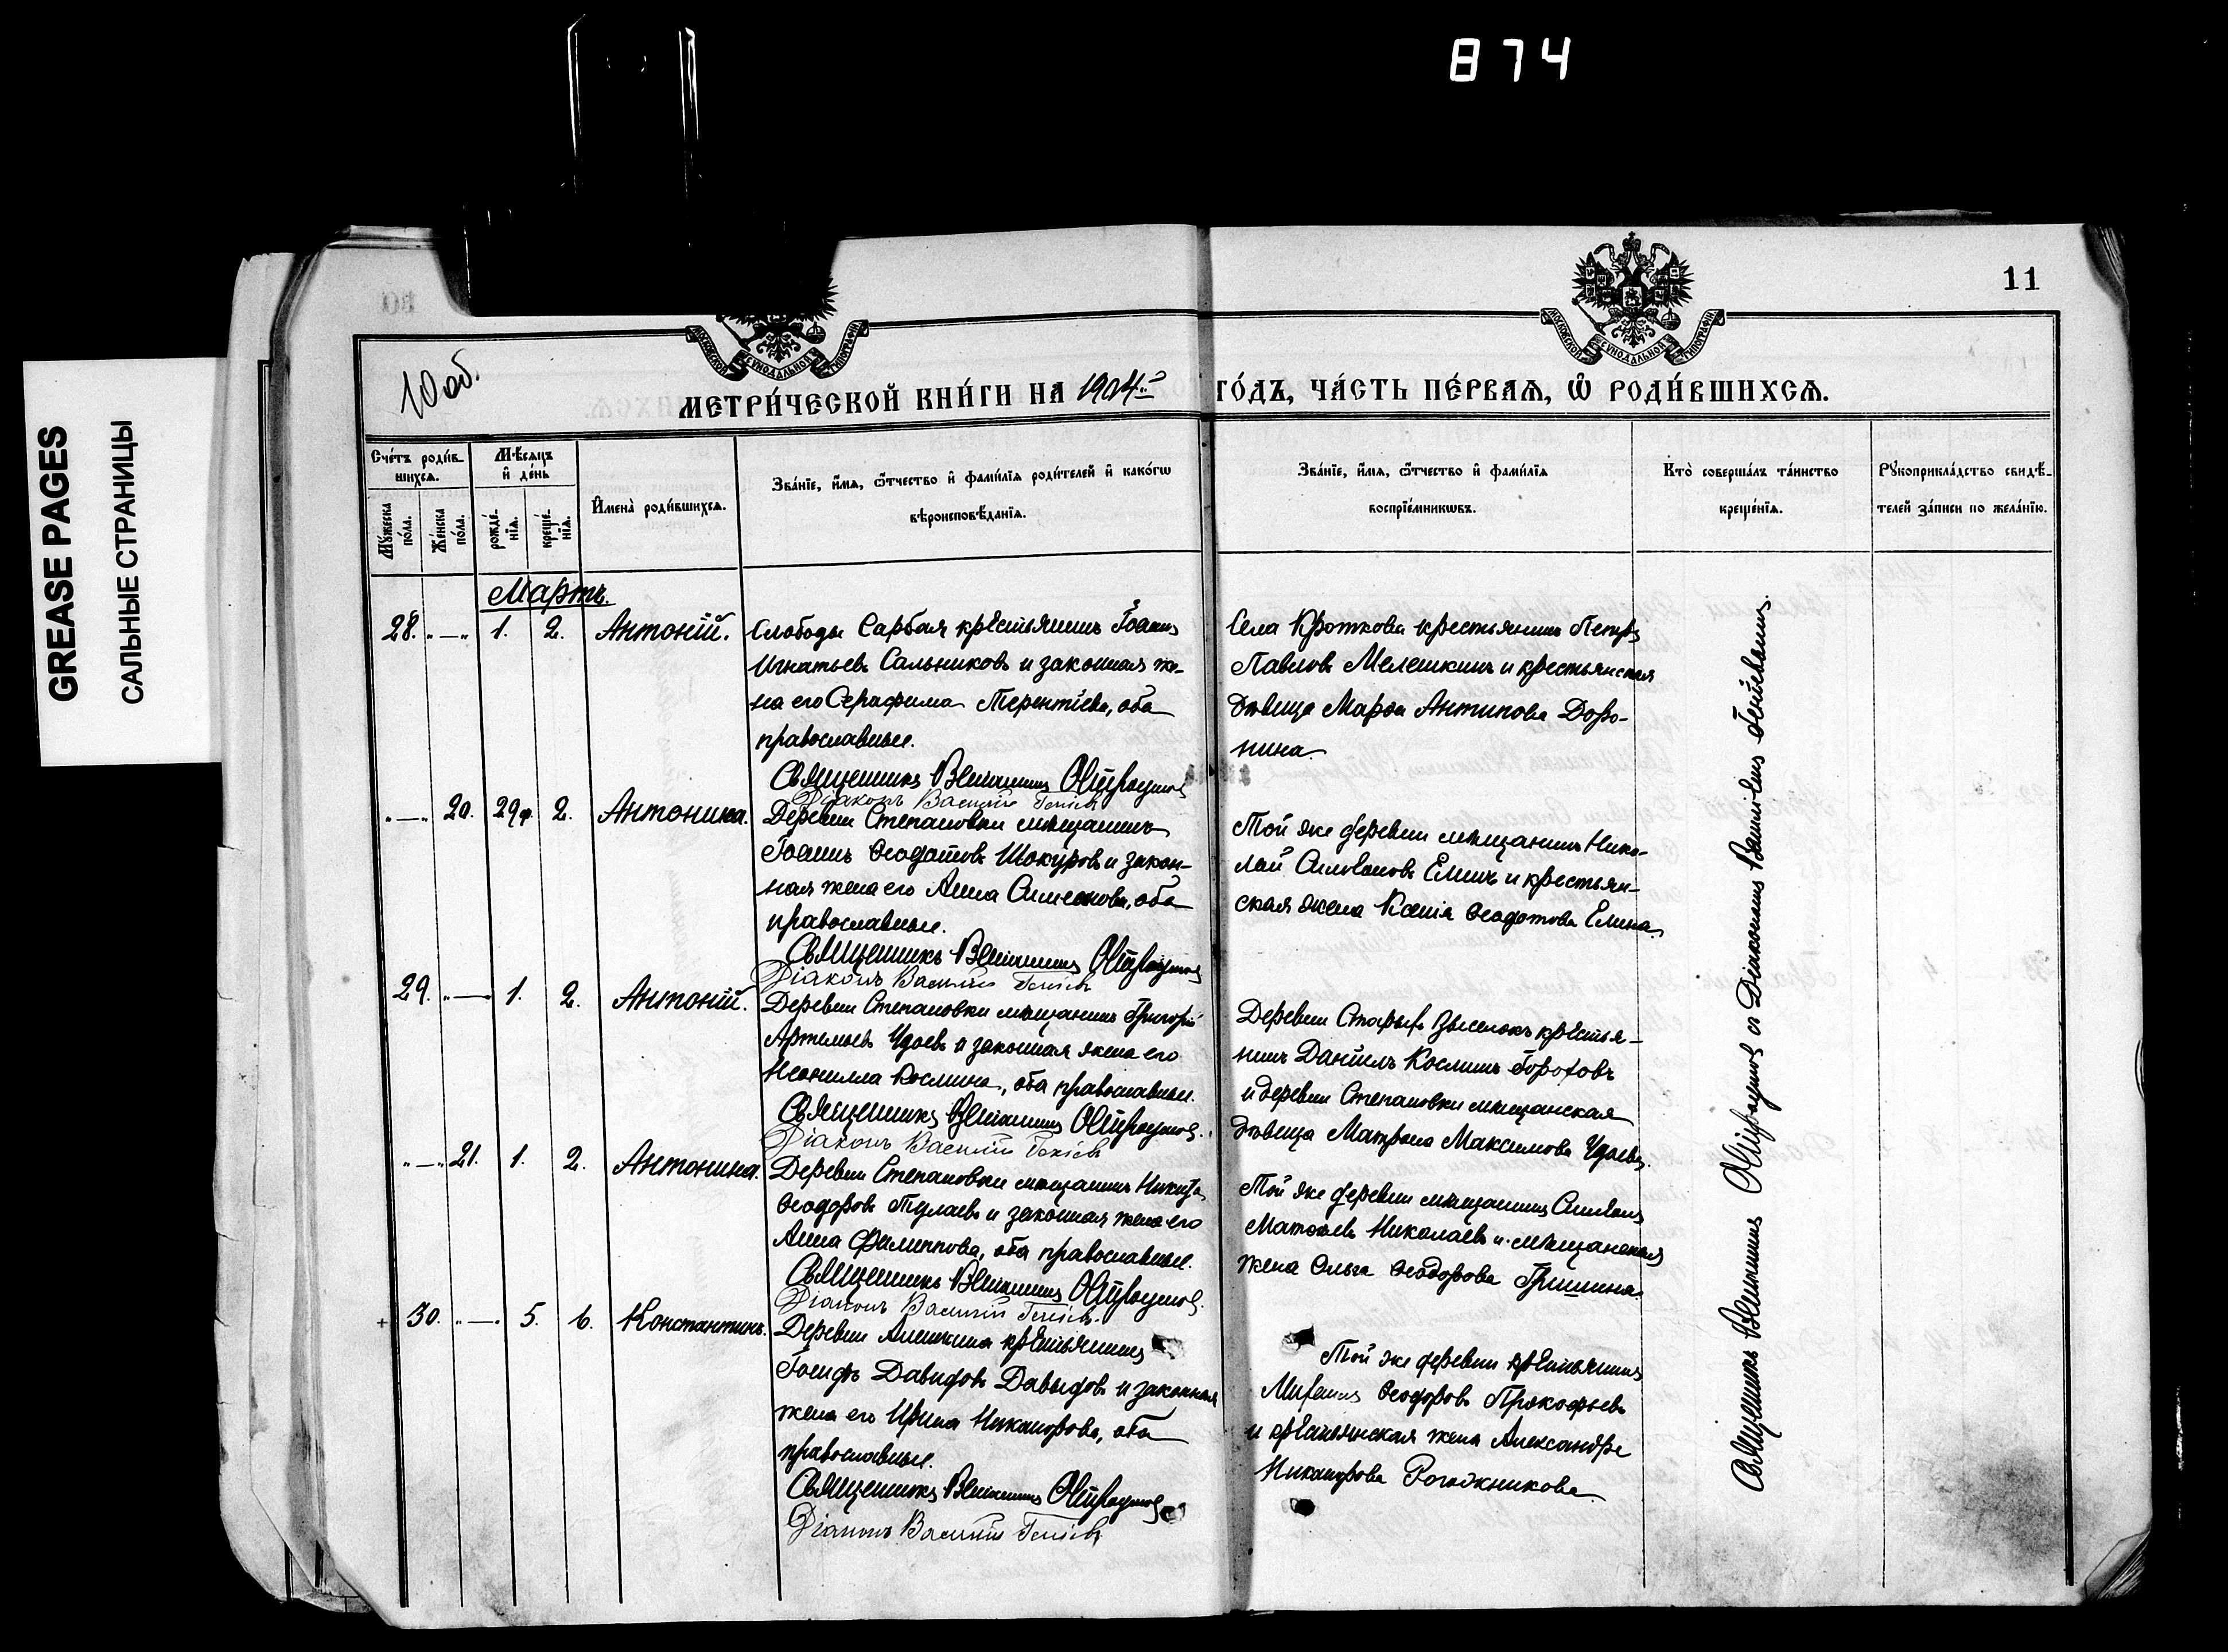 874
GREASE PAGES
САЛЬНЫЕ СТРАНИЦЫ
11
10 об.
МОСКОВСКОЙ СУНОДАЛЬНОЙ ТИПОГРАФІИ
МОСКОВСКОЙ СУНОДАЛЬНОЙ ТИПОГРАФІИ
МЕТРИ́ЧЕСКОЙ КНИ́ГИ НА 1904й ГО́ДЪ, ЧА́СТЬ ПЕ́РВАѦ, Ѡ҆ РОДИ́ВШИХСѦ.
Сче́тъ роди́в-
шихсѧ.
Мꙋ́жеска по́ла.
Же́нска по́ла.
Мѣ́сѧцъ
и҆ де́нь
рожде́-
нїѧ.
креще́-
нїѧ.
И҆мена̀ роди́вшихсѧ.
Зва́нїе, и҆́мѧ, ѻ҆́тчество и҆ фами́лїѧ роди́телей и҆ како́гѡ
вѣроисповѣ́данїѧ.
Зва́нїе, и҆́мѧ, ѻ҆́тчество и҆ фами́лїѧ
воспрїе́мникѡвъ.
Кто̀ соверша́лъ та́инство
креще́нїѧ.
Рꙋкоприкла́дство свидѣ́-
телей за́писи по жела́нїю.
Мартъ.
28. „—„ 1. 2. Антоній.
Слободы Сарбая крестьянинъ Іоаннъ
Игнатьевъ Сальниковъ и законная же-
на его Серафима Терентіева, оба
православные.
Священникъ Веніаминъ
Діаконъ Василій
Села Кроткова крестьянинъ Петръ
Павловъ Мелешкинъ и крестьянская
дѣвица Марѳа Антипова Доро-
нина.
„—„ 20. 29ф. 2. Антонина.
Деревни Степановки мѣщанинъ
Іоаннъ Ѳеодотовъ Шокуровъ и закон-
ная жена его Анна Симеонова, оба
православные.
Священникъ Веніаминъ
Діаконъ Василій
Той же деревни мѣщанинъ Нико-
лай Силовановъ Елинъ и крестьян-
ская жена Ксенія Ѳеодотова Елина.
29. „—„ 1. 2. Антоній.
Деревни Степановки мѣщанинъ Григорій
Артемьевъ Удаевъ и законная жена его
Неонилла Космина, оба православные.
Священникъ Веніаминъ
Діаконъ Василій
Деревни Старыхъ Выселокъ крестья-
нинъ Даніилъ Косминъ Гороховъ
и деревни Степановки мѣщанская
дѣвица Матрона Максимова Удаева.
„—„ 21. 1. 2. Антонина.
Деревни Степановки мѣщанинъ Никита
Ѳеодоровъ Тулаевъ и законная жена его
Анна Филиппова, оба православные.
Священникъ Веніаминъ
Діаконъ Василій
Той же деревни мѣщанинъ Силованъ
Матѳіевъ Николаевъ и мѣщанская
жена Ольга Ѳеодорова Гришина.
+ 30. „—„ 5. 6. Константинъ.
Деревни Алешкина крестьянинъ
Іосифъ Давидовъ Давыдовъ и законная
жена его Ирина Никанорова, оба
православные.
Священникъ Веніаминъ
Діаконъ Василій
Той же деревни крестьянинъ
Михаилъ Ѳеодоровъ Прокофьевъ
и крестьянская жена Александра
Никанорова Рогожникова.
Священникъ Веніаминъ съ Діакономъ Василіемъ